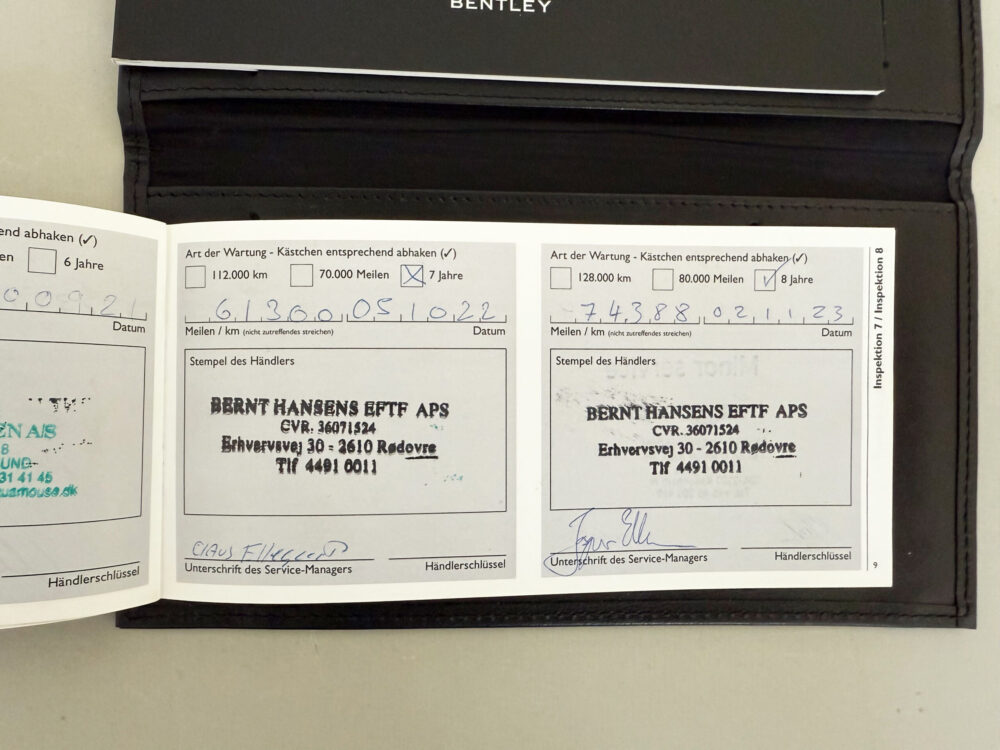 BENTLEY
end abhaken (✓)
en 6 Jahre
0 0 9 2 1
Datum
EN A/S
8
UND
31 41 45
uamouse.dk
Händlerschlüssel
Art der Wartung - Kästchen entsprechend abhaken (✓)
112.000 km 70.000 Meilen 7 Jahre
61300 051022
Meilen / km (nicht zutreffendes streichen) Datum
Stempel des Händlers
BERNT HANSENS EFTF APS
CVR. 36071524
Erhvervsvej 30 - 2610 Rødovre
Tlf 4491 0011
Unterschrift des Service-Managers Händlerschlüssel
Art der Wartung - Kästchen entsprechend abhaken (✓)
128.000 km 80.000 Meilen 8 Jahre
74388 021123
Meilen / km (nicht zutreffendes streichen) Datum
Stempel des Händlers
BERNT HANSENS EFTF APS
CVR. 36071524
Erhvervsvej 30 - 2610 Rødovre
Tlf 4491 0011
Unterschrift des Service-Managers Händlerschlüssel
Inspektion 7 / Inspektion 8
9